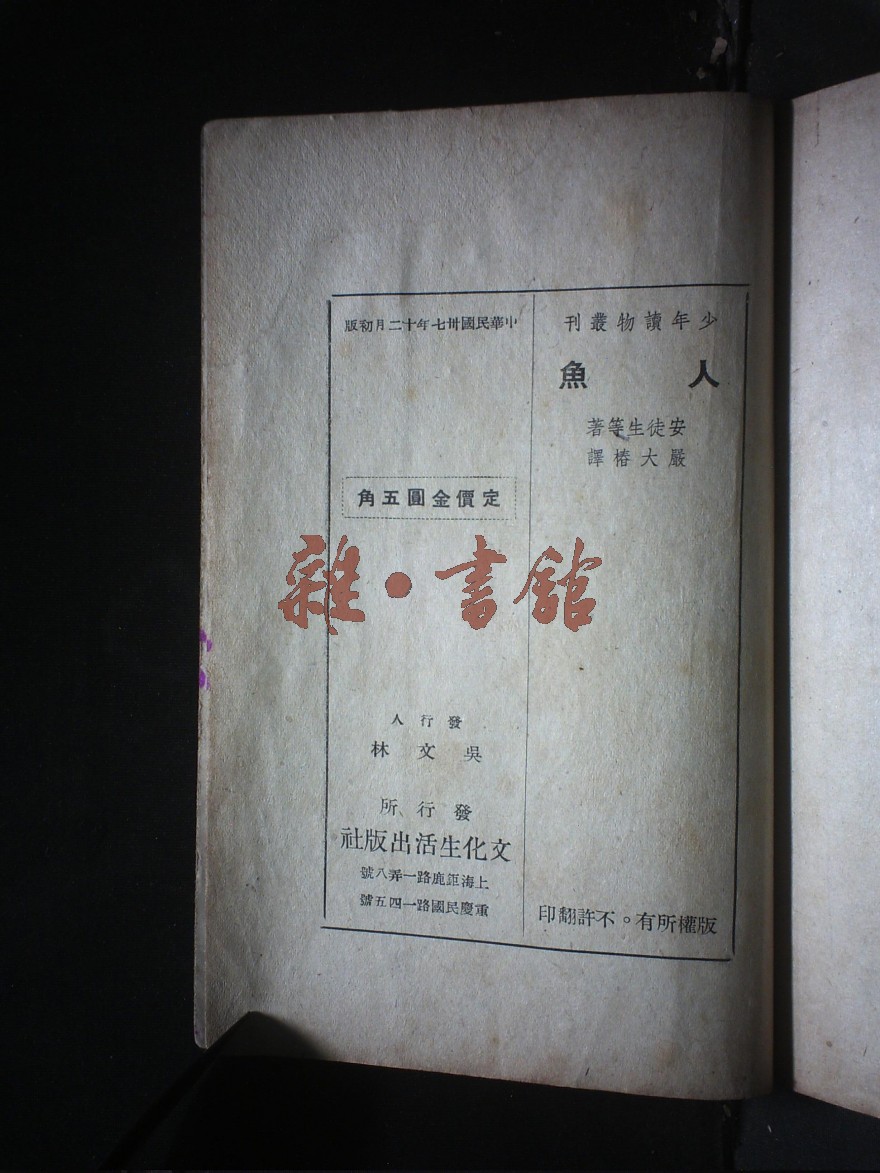 少年讀物叢刊
人魚
安徒生等著
嚴大椿譯
版權所有。不許翻印
中華民國卅七年十二月初版
定價金圓五角
雜·書館
發行人
吳文林
發行所
文化生活出版社
上海鉅鹿路一弄八號
重慶民國路一四五號